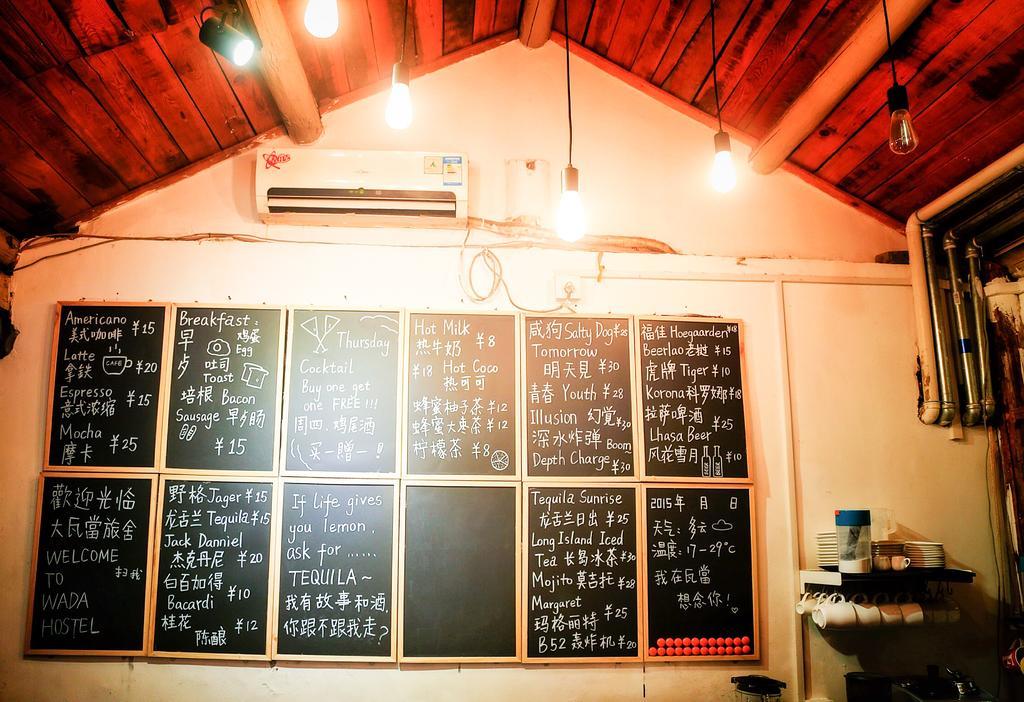 Americano
美式咖啡 ¥15
Latte
拿铁 CAFE ¥20
Espresso
意式浓缩 ¥15
Mocha
摩卡 ¥25
Breakfast:
早 鸡蛋
Egg
夕 吐司
Toast
培根 Bacon
Sausage 早夕肠
¥15
Thursday
Cocktail
Buy one get
one FREE!!!
周四.鸡尾酒
买一赠一!
Hot Milk
热牛奶 ¥8
¥18 Hot Coco
热可可
蜂蜜柚子茶 ¥12
蜂蜜大枣茶 ¥12
柠檬茶 ¥8
咸狗 Salty Dog ¥28
Tomorrow
明天見 ¥30
青春 Youth ¥28
Illusion 幻覚 ¥30
深水炸彈 Boom
Depth Charge ¥30
福佳 Hoegaarden ¥18
Beerlao 老挝 ¥15
虎牌 Tiger ¥10
Korona 科罗娜 ¥18
拉萨啤酒 ¥25
Lhasa Beer
风花雪月 ¥10
歡迎光临
大瓦當旅舍
WELCOME
TO 扫我
WADA
HOSTEL
野格 Jager ¥15
龙舌兰 Tequila ¥15
Jack Danniel
杰克丹尼 ¥20
白百加得
Bacardi ¥10
桂花
陈酿 ¥12
If life gives
you lemon,
ask for ......
TEQUILA~
我有故事和酒.
你跟不跟我走?
Tequila Sunrise
龙舌兰日出 ¥25
Long Island Iced
Tea 长岛冰茶 ¥30
Mojito 莫吉托 ¥28
Margaret
玛格丽特 ¥25
B52 轰炸机 ¥20
2015年 月 日
天气: 多云
温度: 17-29℃
我在瓦當
想念你!